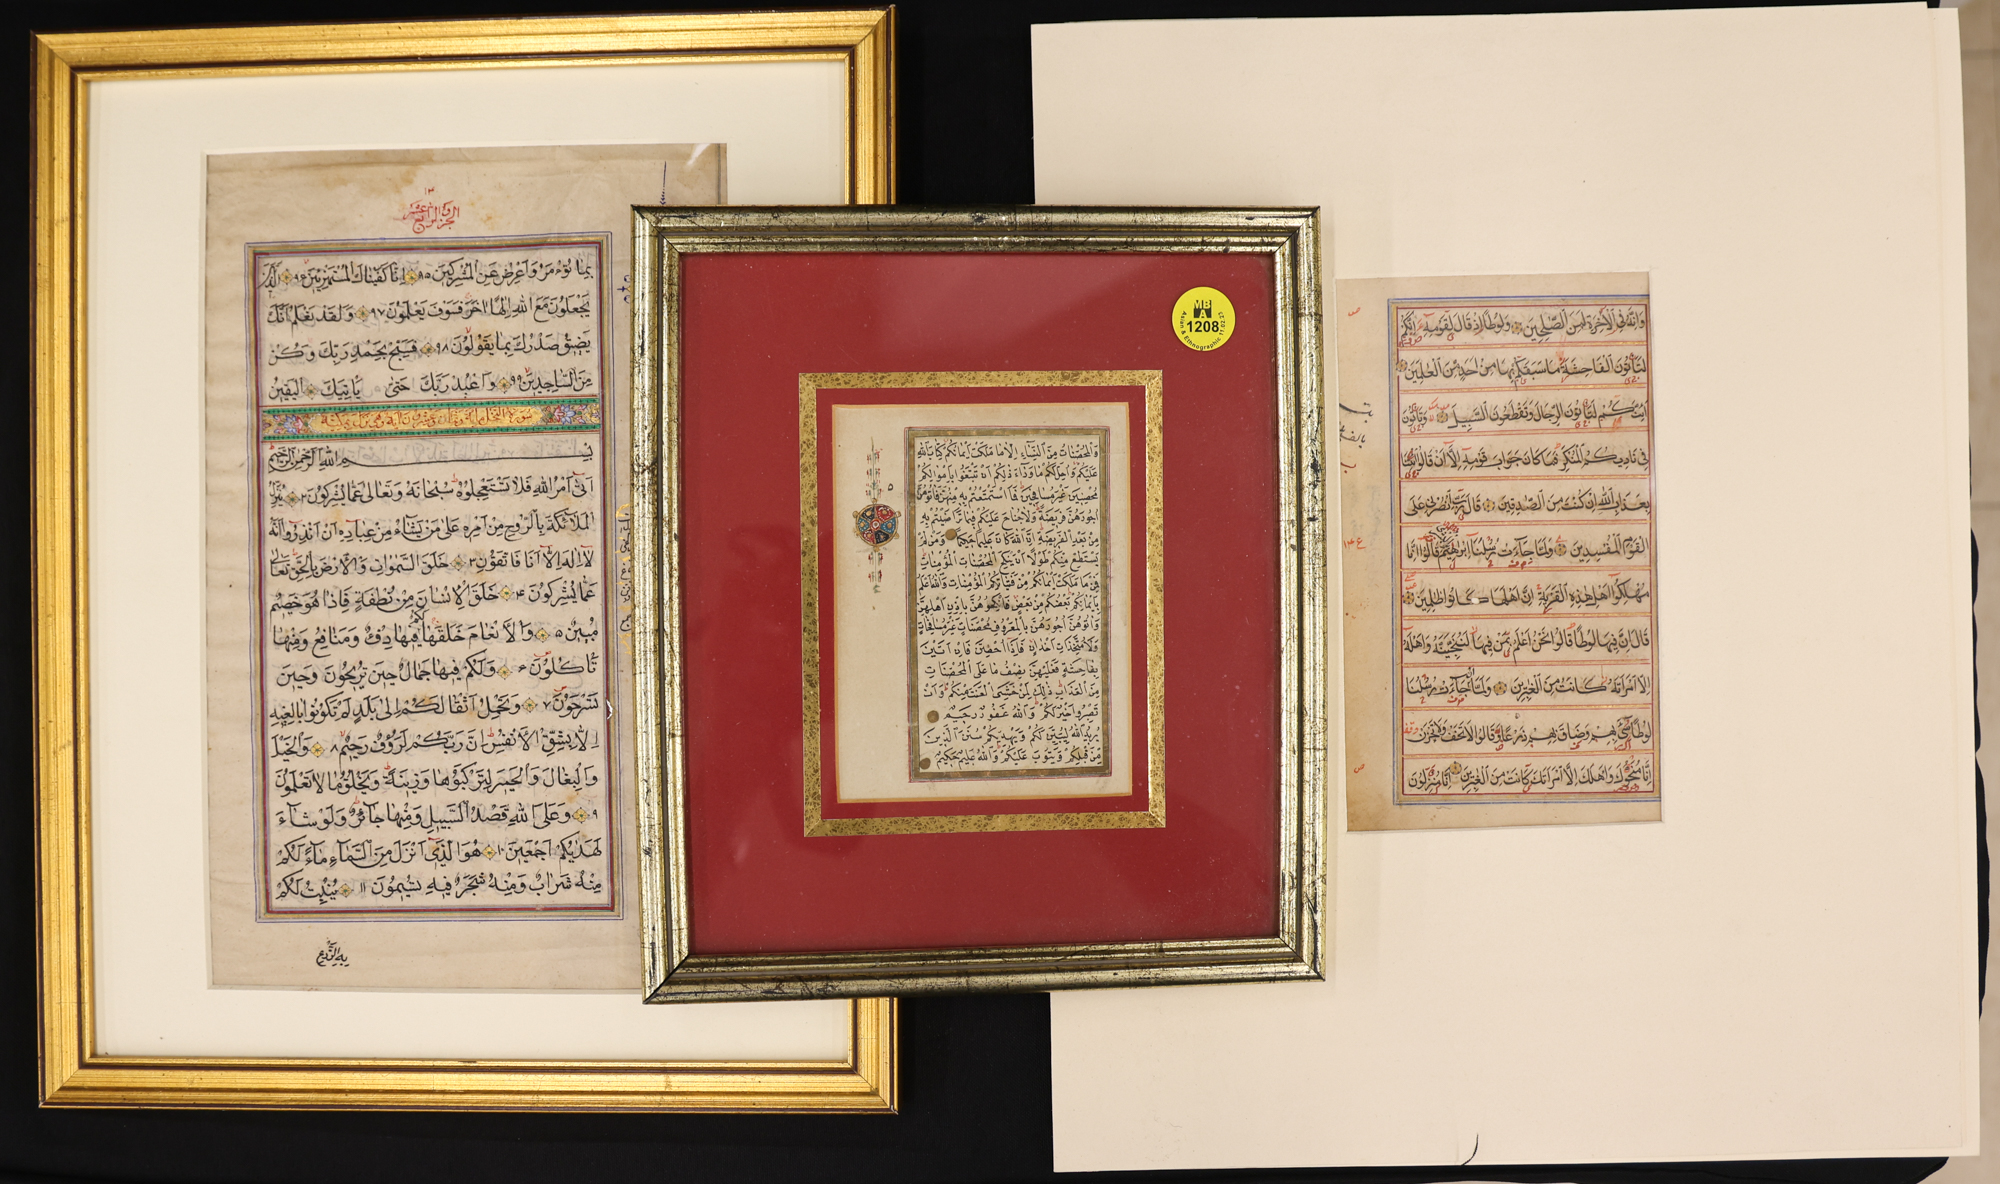 الجزو الرابع عشر
بما تؤمر واعرض عن المشركين انا كفيناك المستهزئين الذين
يجعلون مع الله الها اخر فسوف يعلمون ٩٧ ولقد نعلم انك
يضيق صدرك بما يقولون ٩٨ فسبح بحمد ربك وكن
من الساجدين ٩٩ واعبد ربك حتى ياتيك اليقين
سورة النحل
بسم الله الرحمن الرحيم
اتى امر الله فلا تستعجلوه سبحانه وتعالى عما يشركون ٢ ينزل
الملائكة بالروح من امره على من يشاء من عباده ان انذروا انه
لا اله الا انا فاتقون ٣ خلق السموات والارض بالحق تعالى
عما يشركون ۴ خلق الانسان من نطفة فاذا هو خصيم
مبين ٥ والانعام خلقها لكم فيها دفء ومنافع ومنها
تاكلون ۶ ولكم فيها جمال حين تريحون وحين
تسرحون ٧ وتحمل اثقالكم الى بلد لم تكونوا بالغيه
الا بشق الانفس ان ربكم لرؤف رحيم ٨ والخيل
والبغال والحمير لتركبوها وزينة ويخلق ما لا تعلمون
٩ وعلى الله قصد السبيل ومنها جائر ولو شاء
لهديكم اجمعين ١٠ هو الذي انزل من السماء ماء لكم
منه شراب ومنه شجر فيه تسيمون ١١ ينبت لكم
به الزرع
MBA
1208
Asian & Ethnographic 11.02.22
والمحصنات من النساء الا ما ملكت ايمانكم كتاب الله
عليكم واحل لكم ما وراء ذلكم ان تبتغوا باموالكم
محصنين غير مسافحين فما استمتعتم به منهن فاتوهن
اجورهن فريضة ولا جناح عليكم فيما تراضيتم به
من بعد الفريضة ان الله كان عليما حكيما ومن لم
يستطع منكم طولا ان ينكح المحصنات المؤمنات
فمن ما ملكت ايمانكم من فتياتكم المؤمنات والله اعلم
بايمانكم بعضكم من بعض فانكحوهن باذن اهلهن
واتوهن اجورهن بالمعروف محصنات غير مسافحات
ولا متخذات اخدان فاذا احصن فان اتين
بفاحشة فعليهن نصف ما على المحصنات
من العذاب ذلك لمن خشى العنت منكم وان
تصبروا خير لكم والله غفور رحيم
يريد الله ليبين لكم ويهديكم سنن الذين
من قبلكم ويتوب عليكم والله عليم حكيم
وانه في الاخرة لمن الصلحين ولوطا اذ قال لقومه انكم
لتاتون الفاحشة ما سبقكم بها من احد من العلمين
ائنكم لتاتون الرجال وتقطعون السبيل وتاتون
في ناديكم المنكر فما كان جواب قومه الا ان قالوا ائتنا
بعذاب الله ان كنت من الصدقين قال رب انصرني على
القوم المفسدين ولما جاءت رسلنا ابرهيم قالوا انا
مهلكوا اهل هذه القرية ان اهلها كانوا ظلمين
قال ان فيها لوطا قالوا نحن اعلم بمن فيها لننجينه واهله
الا امراته كانت من الغبرين ولما ان جاءت رسلنا
لوطا سيء بهم وضاق بهم ذرعا وقالوا لا تخف ولا تحزن
انا منجوك واهلك الا امراتك كانت من الغبرين انا منزلون